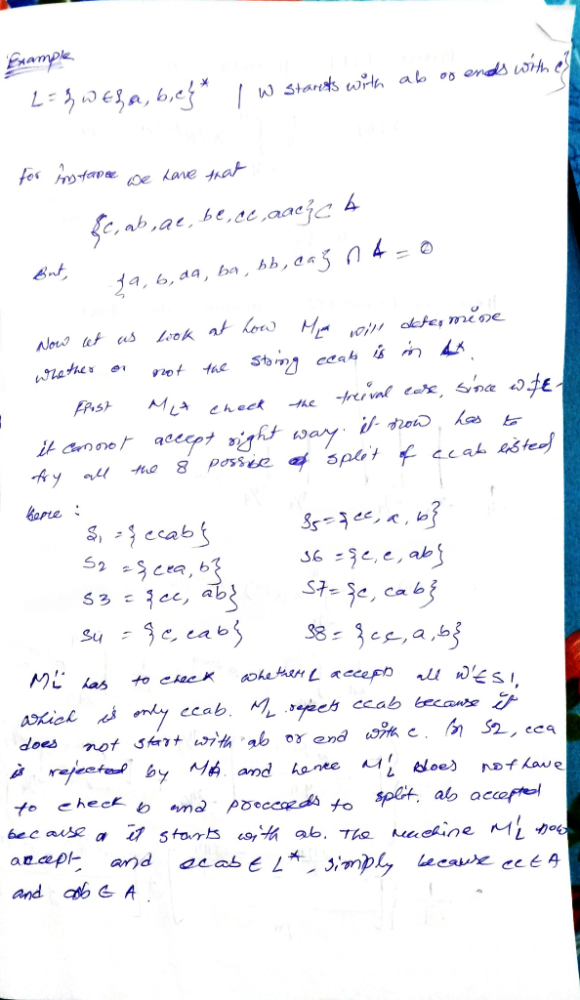 Example
L = { w ∈ {a, b, c}* | W starts with ab or ends with c}
For instance we have that
{c, ab, ac, bc, cc, aac} ⊂ A
But, {a, b, aa, ba, bb, ca} ∩ A = ∅
Now let us look at how ML* will determine
whether or not the string ccab is in L*.
First ML* check the treival case, since w ≠ ε
it cannot accept right way. it now has to
try all the 8 possice split of ccab listed
here :
S1 = {ccab}
S2 = {cca, b}
S3 = {cc, ab}
S4 = {c, cab}
S5 = {cc, a, b}
S6 = {c, c, ab}
S7 = {c, cab}
S8 = {cc, a, b}
M'L has to check whether L accepts all w' ∈ S1,
which is only ccab. ML rejects ccab because it
does not start with ab or end with c. In S2, cca
is rejected by MA and hence M'L does not have
to check b and proccceds to split. ab accepted
because a it starts with ab. The machine M'L now
accept, and ccab ∈ L*, simply because cc ∈ A
and ab ∈ A.